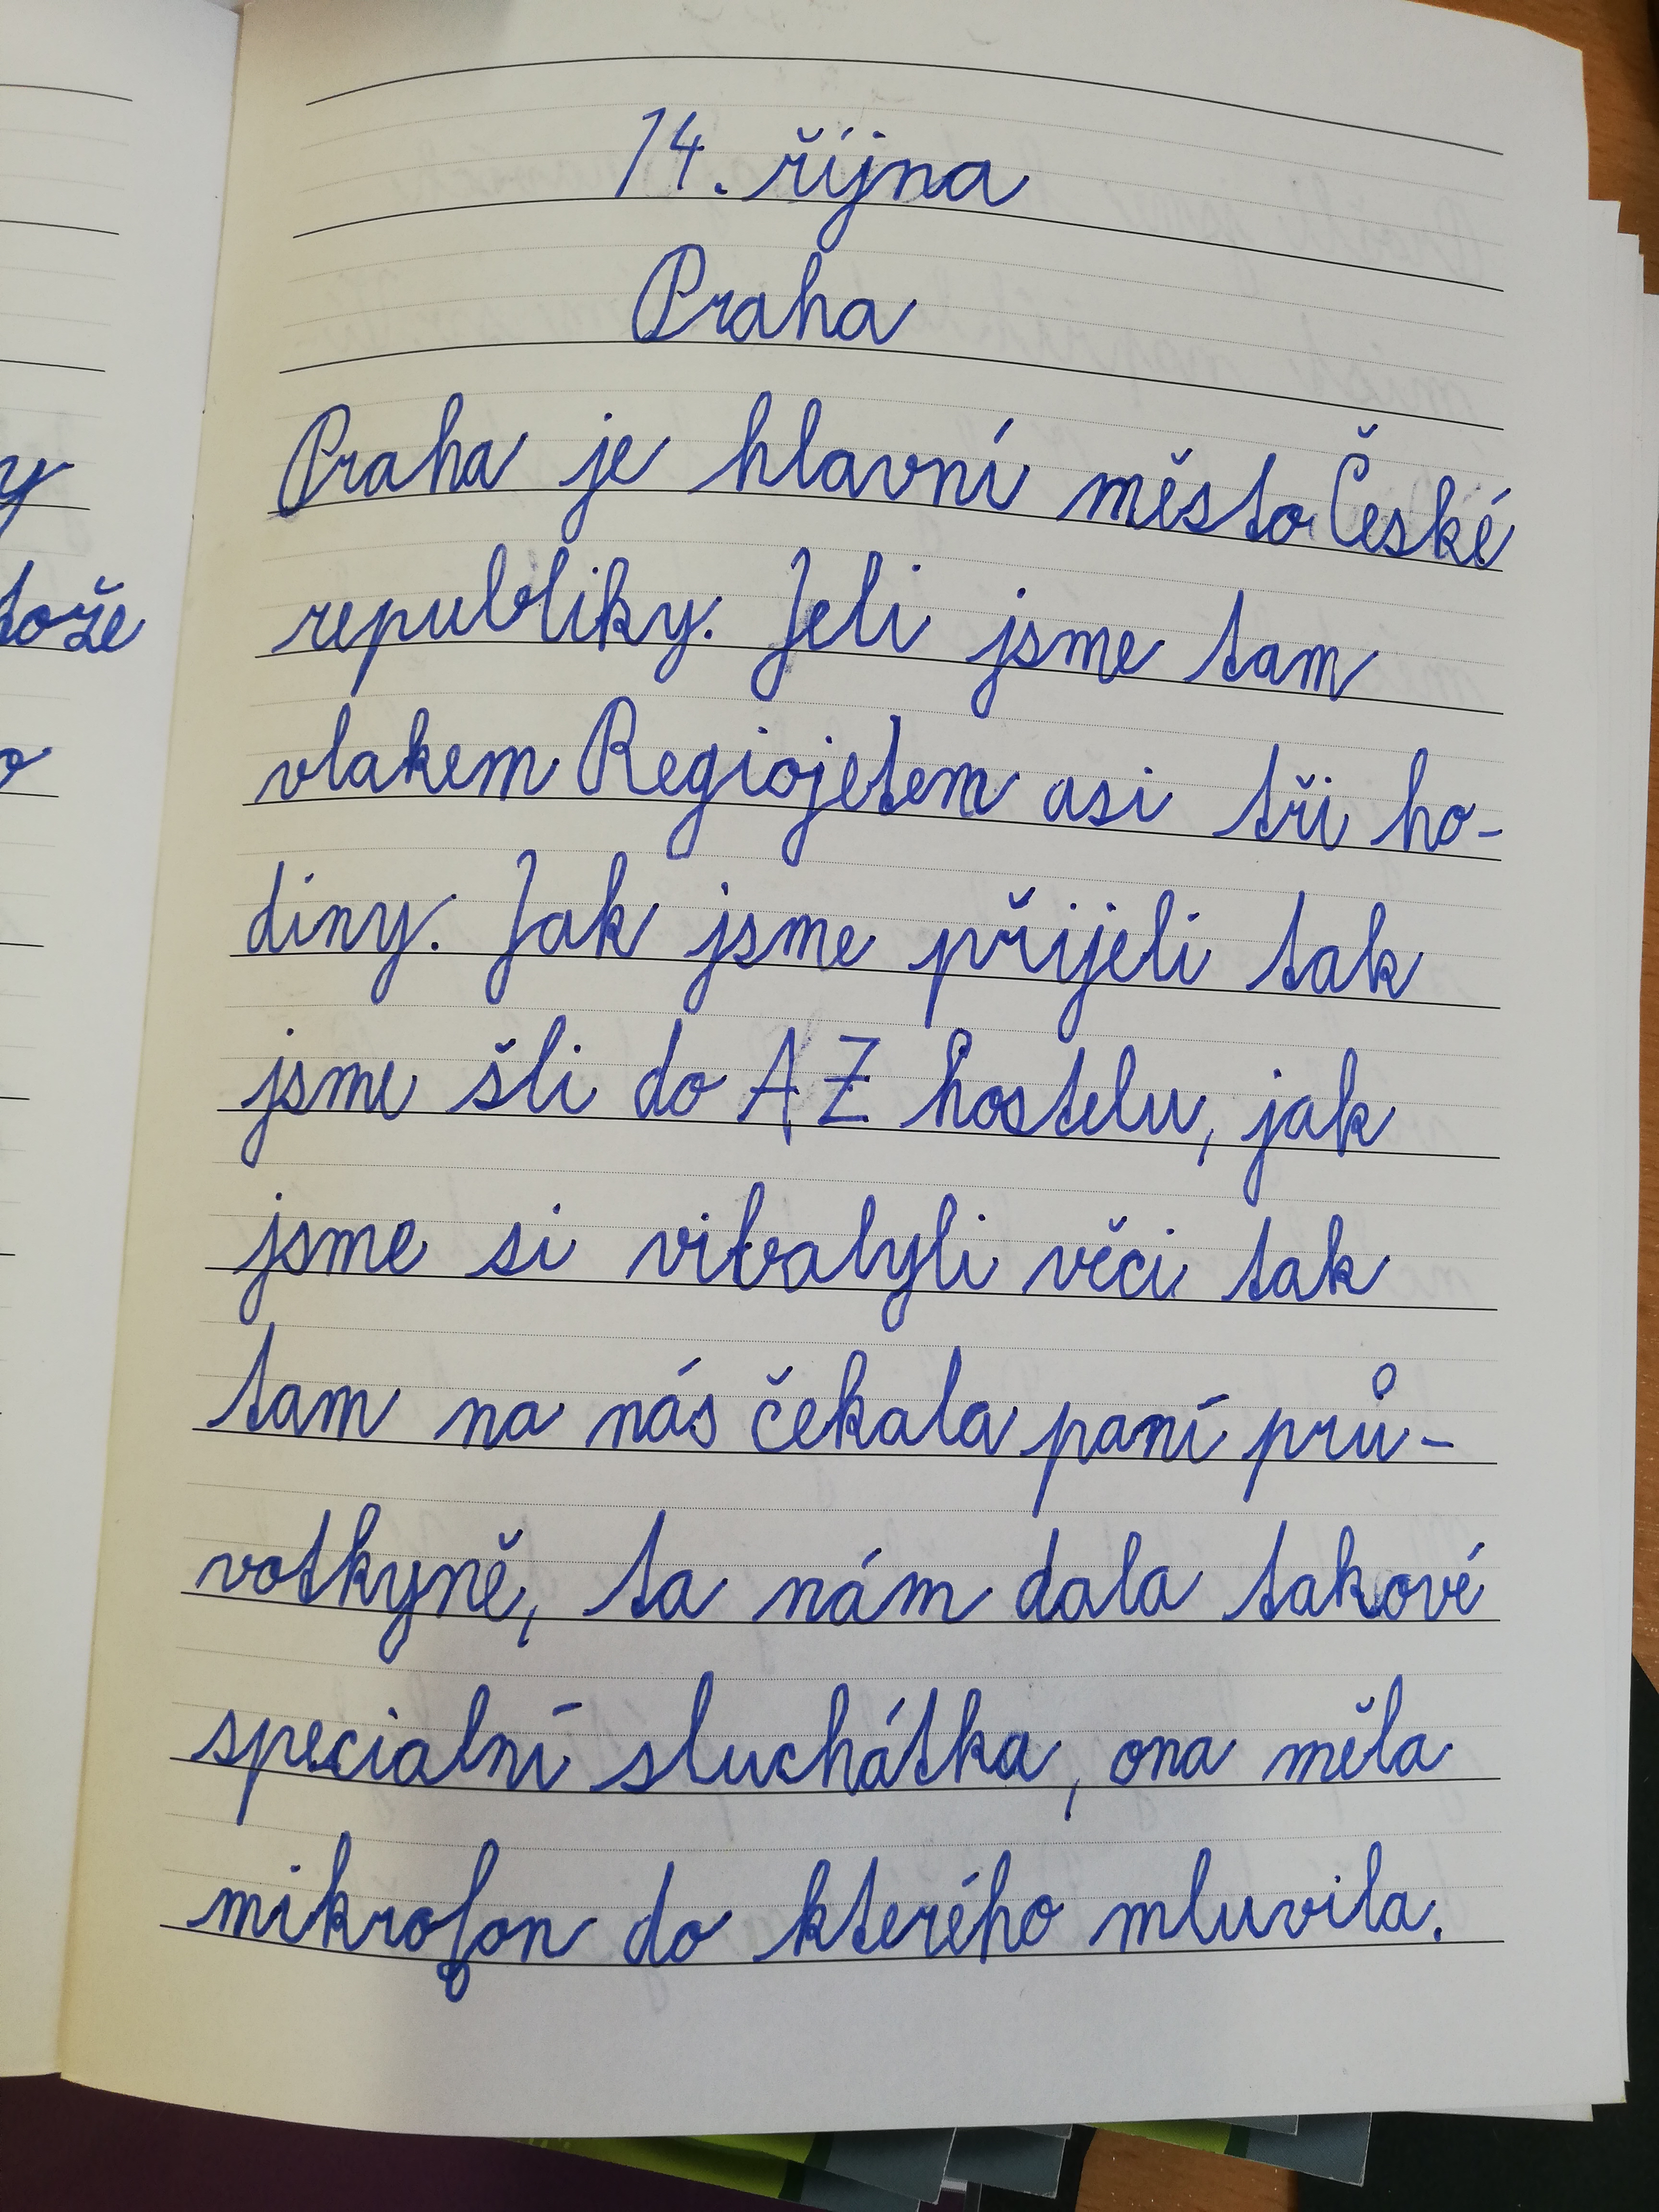 y
tože
o
14. října
Praha
Praha je hlavní město České
republiky. Jeli jsme tam
vlakem Regiojetem asi tři ho-
diny. Jak jsme přijeli tak
jsme šli do AZ hostelu, jak
jsme si vibalyli věci tak
tam na nás čekala paní prů-
votkyně, ta nám dala takové
specialní sluchátka, ona měla
mikrofon do kterého mluvila.